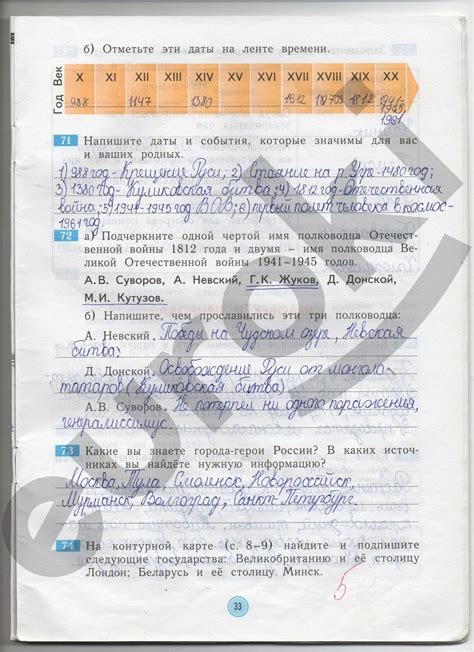 б) Отметьте эти даты на ленте времени.
Год Век
X XI XII XIII XIV XV XVI XVII XVIII XIX XX
988 1147 1380 1612 1703 1812 1941-
1945
1961
71 Напишите даты и события, которые значимы для вас
и ваших родных.
1) 988 год - Крещение Руси; 2) Стояние на р. Угре - 1480 год;
3) 1380 год - Куликовская битва; 4) 1812 год - Отечественная
война; 5) 1941-1945 год ВОВ; 6) первый полёт человека в космос -
1961 год
72 а) Подчеркните одной чертой имя полководца Отечест-
венной войны 1812 года и двумя – имя полководца Ве-
ликой Отечественной войны 1941–1945 годов.
А.В. Суворов, А. Невский, Г.К. Жуков, Д. Донской,
М.И. Кутузов.
б) Напишите, чем прославились эти три полководца:
А. Невский, Победы на Чудском озере, Невская
битва;
Д. Донской, Освобождение Руси от монголо
татаров (Куликовская битва)
А.В. Суворов, Не потерпел ни одного поражения,
генералиссимус.
73 Какие вы знаете города-герои России? В каких источ-
никах вы найдёте нужную информацию?
Москва, Тула, Смоленск, Новороссийск,
Мурманск, Волгоград, Санкт-Петербург.
74 На контурной карте (с. 8–9) найдите и подпишите
следующие государства: Великобританию и её столицу
Лондон; Беларусь и её столицу Минск.
5
33
euroki